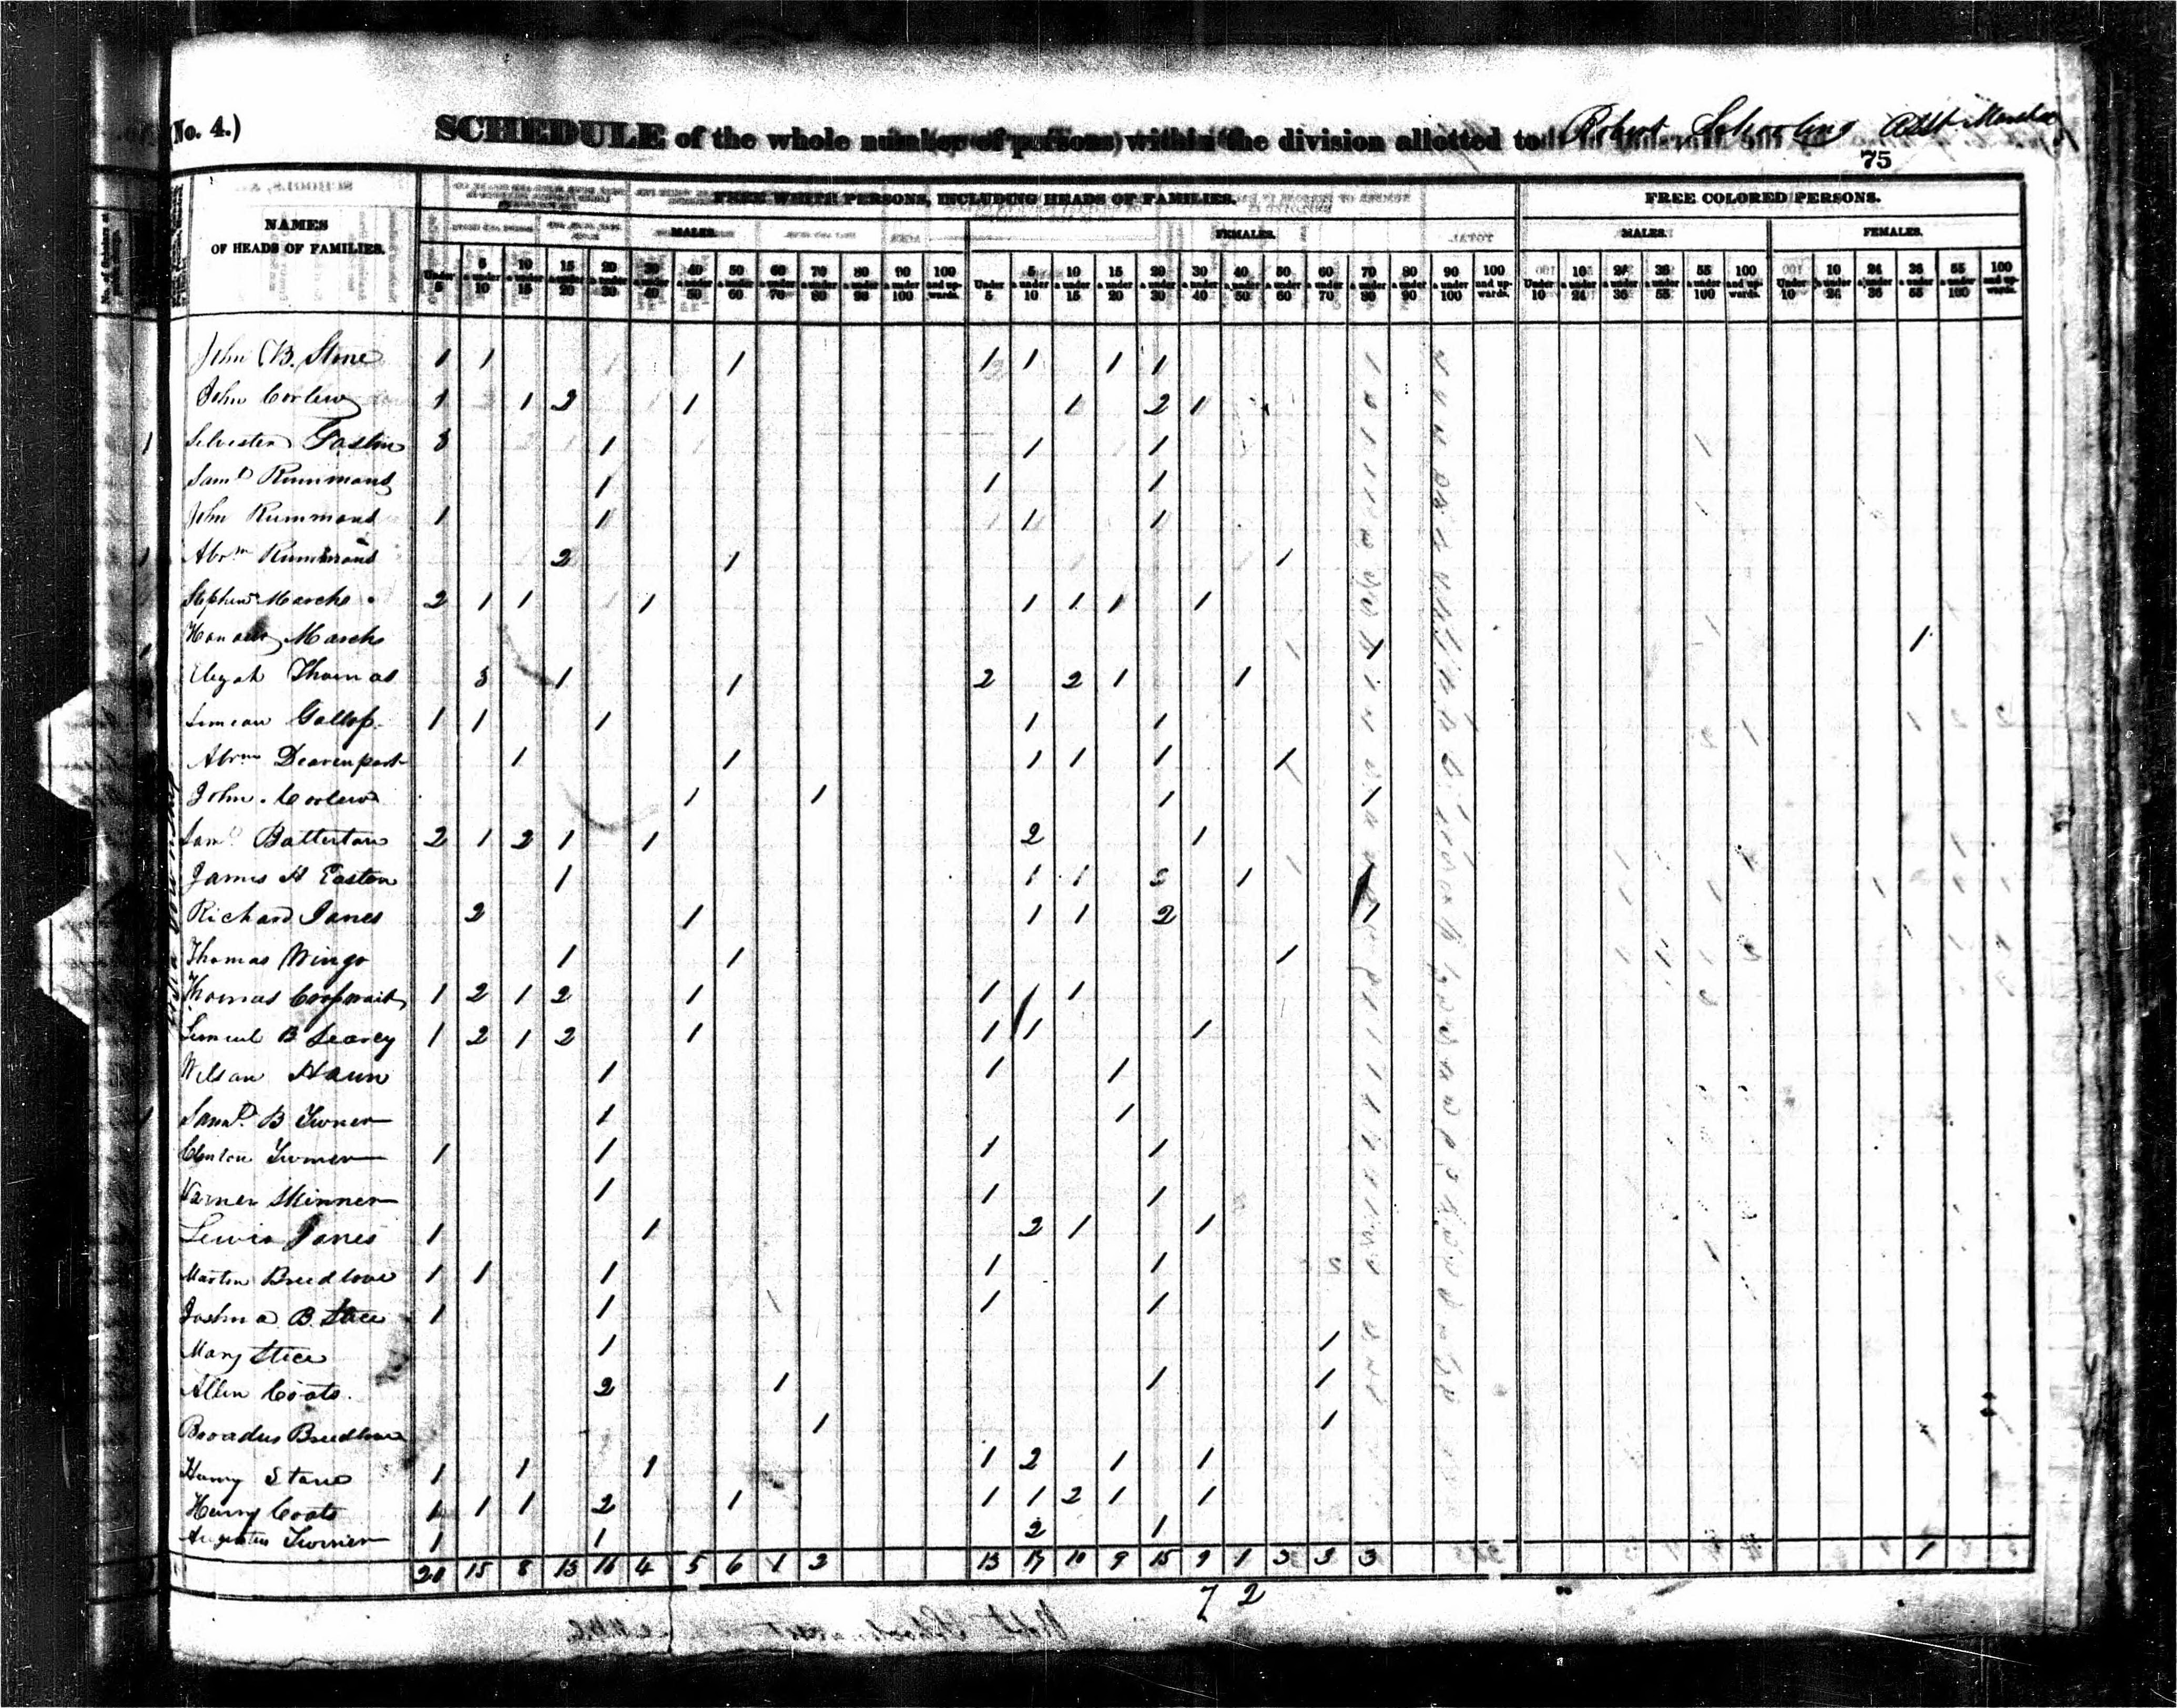 (No. 4.)
SCHEDULE of the whole number of persons within the division allotted to Robert Schooling Asst. Marshal
75
NAMES OF HEADS OF FAMILIES.
FREE WHITE PERSONS, INCLUDING HEADS OF FAMILIES.
FREE COLORED PERSONS.
MALES. FEMALES. MALES. FEMALES.
Under 5 | 5 & under 10 | 10 & under 15 | 15 & under 20 | 20 & under 30 | 30 & under 40 | 40 & under 50 | 50 & under 60 | 60 & under 70 | 70 & under 80 | 80 & under 90 | 90 & under 100 | 100 and upwards. | Under 5 | 5 & under 10 | 10 & under 15 | 15 & under 20 | 20 & under 30 | 30 & under 40 | 40 & under 50 | 50 & under 60 | 60 & under 70 | 70 & under 80 | 80 & under 90 | 90 & under 100 | 100 and upwards. | Under 10 | 10 & under 24 | 24 & under 36 | 36 & under 55 | 55 & under 100 | 100 and upwards. | Under 10 | 10 & under 24 | 24 & under 36 | 36 & under 55 | 55 & under 100 | 100 and upwards.
John B. Stone 1 1 1 1 1 1 1
John Corlew 1 1 2 1 1 2 1
Silvester 3 1 1 1
Saml Rummons 1 1 1
John Rummons 1 1 1 1
Abrm Rummons 2 1 1
Stephen Marchs 2 1 1 1 1 1 1 1
Marchs 1
Elizah Thomas 3 1 1 2 2 1 1
Simeon Gallop 1 1 1 1 1
Abrm Deavenport 1 1 1 1 1 1
John Corlew 1 1 1 1
Saml Batterton 2 1 2 1 1 2 1
James H Easton 1 1 1 1
Richard Janes 2 1 1 1 2 1
Thomas Wingo 1 1 1
Thomas 1 2 1 2 1 1 1 1
Lemuel B Searcy 1 2 1 2 1 1 1 1
Wilson Haun 1 1 1
Saml B Turner 1 1
Clenton Turner 1 1 1 1
Varner Skinner 1 1 1
Lewis Janes 1 1 2 1 1
Martin Breedlove 1 1 1 1 1
Joshua B. Stice 1 1 1 1
Mary Stice 1 1
Allen Coats. 2 1 1 1
Broadus Breedlove 1 1
Henry Stone 1 1 1 1 2 1 1
Henry Coats 1 1 1 2 1 1 1 2 1 1
Augustus Turner 1 1 2 1
20 15 8 13 16 4 5 6 1 2 13 17 10 9 15 9 1 3 3 3 1
72